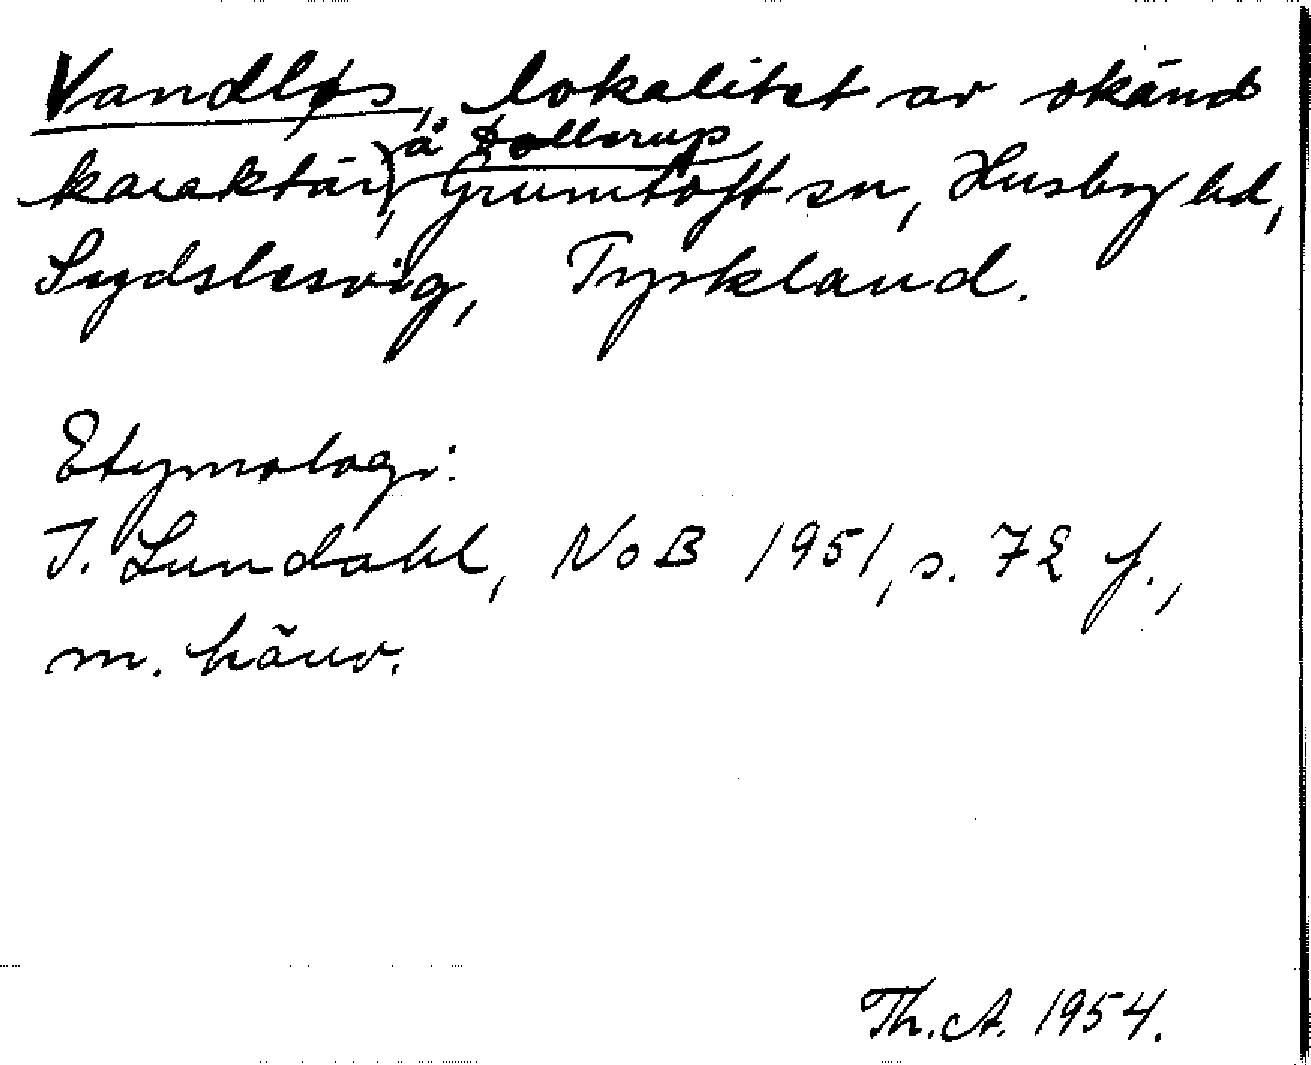 Vandløs, lokalitet av okänd
karaktär å Dollerup, Grumtoft sn, Husby hd,
Sydslesvig, Tyskland.
Etymologi:
I. Lundahl, NoB 1951, s. 72 f.,
m. hänv.
Th. A. 1954.